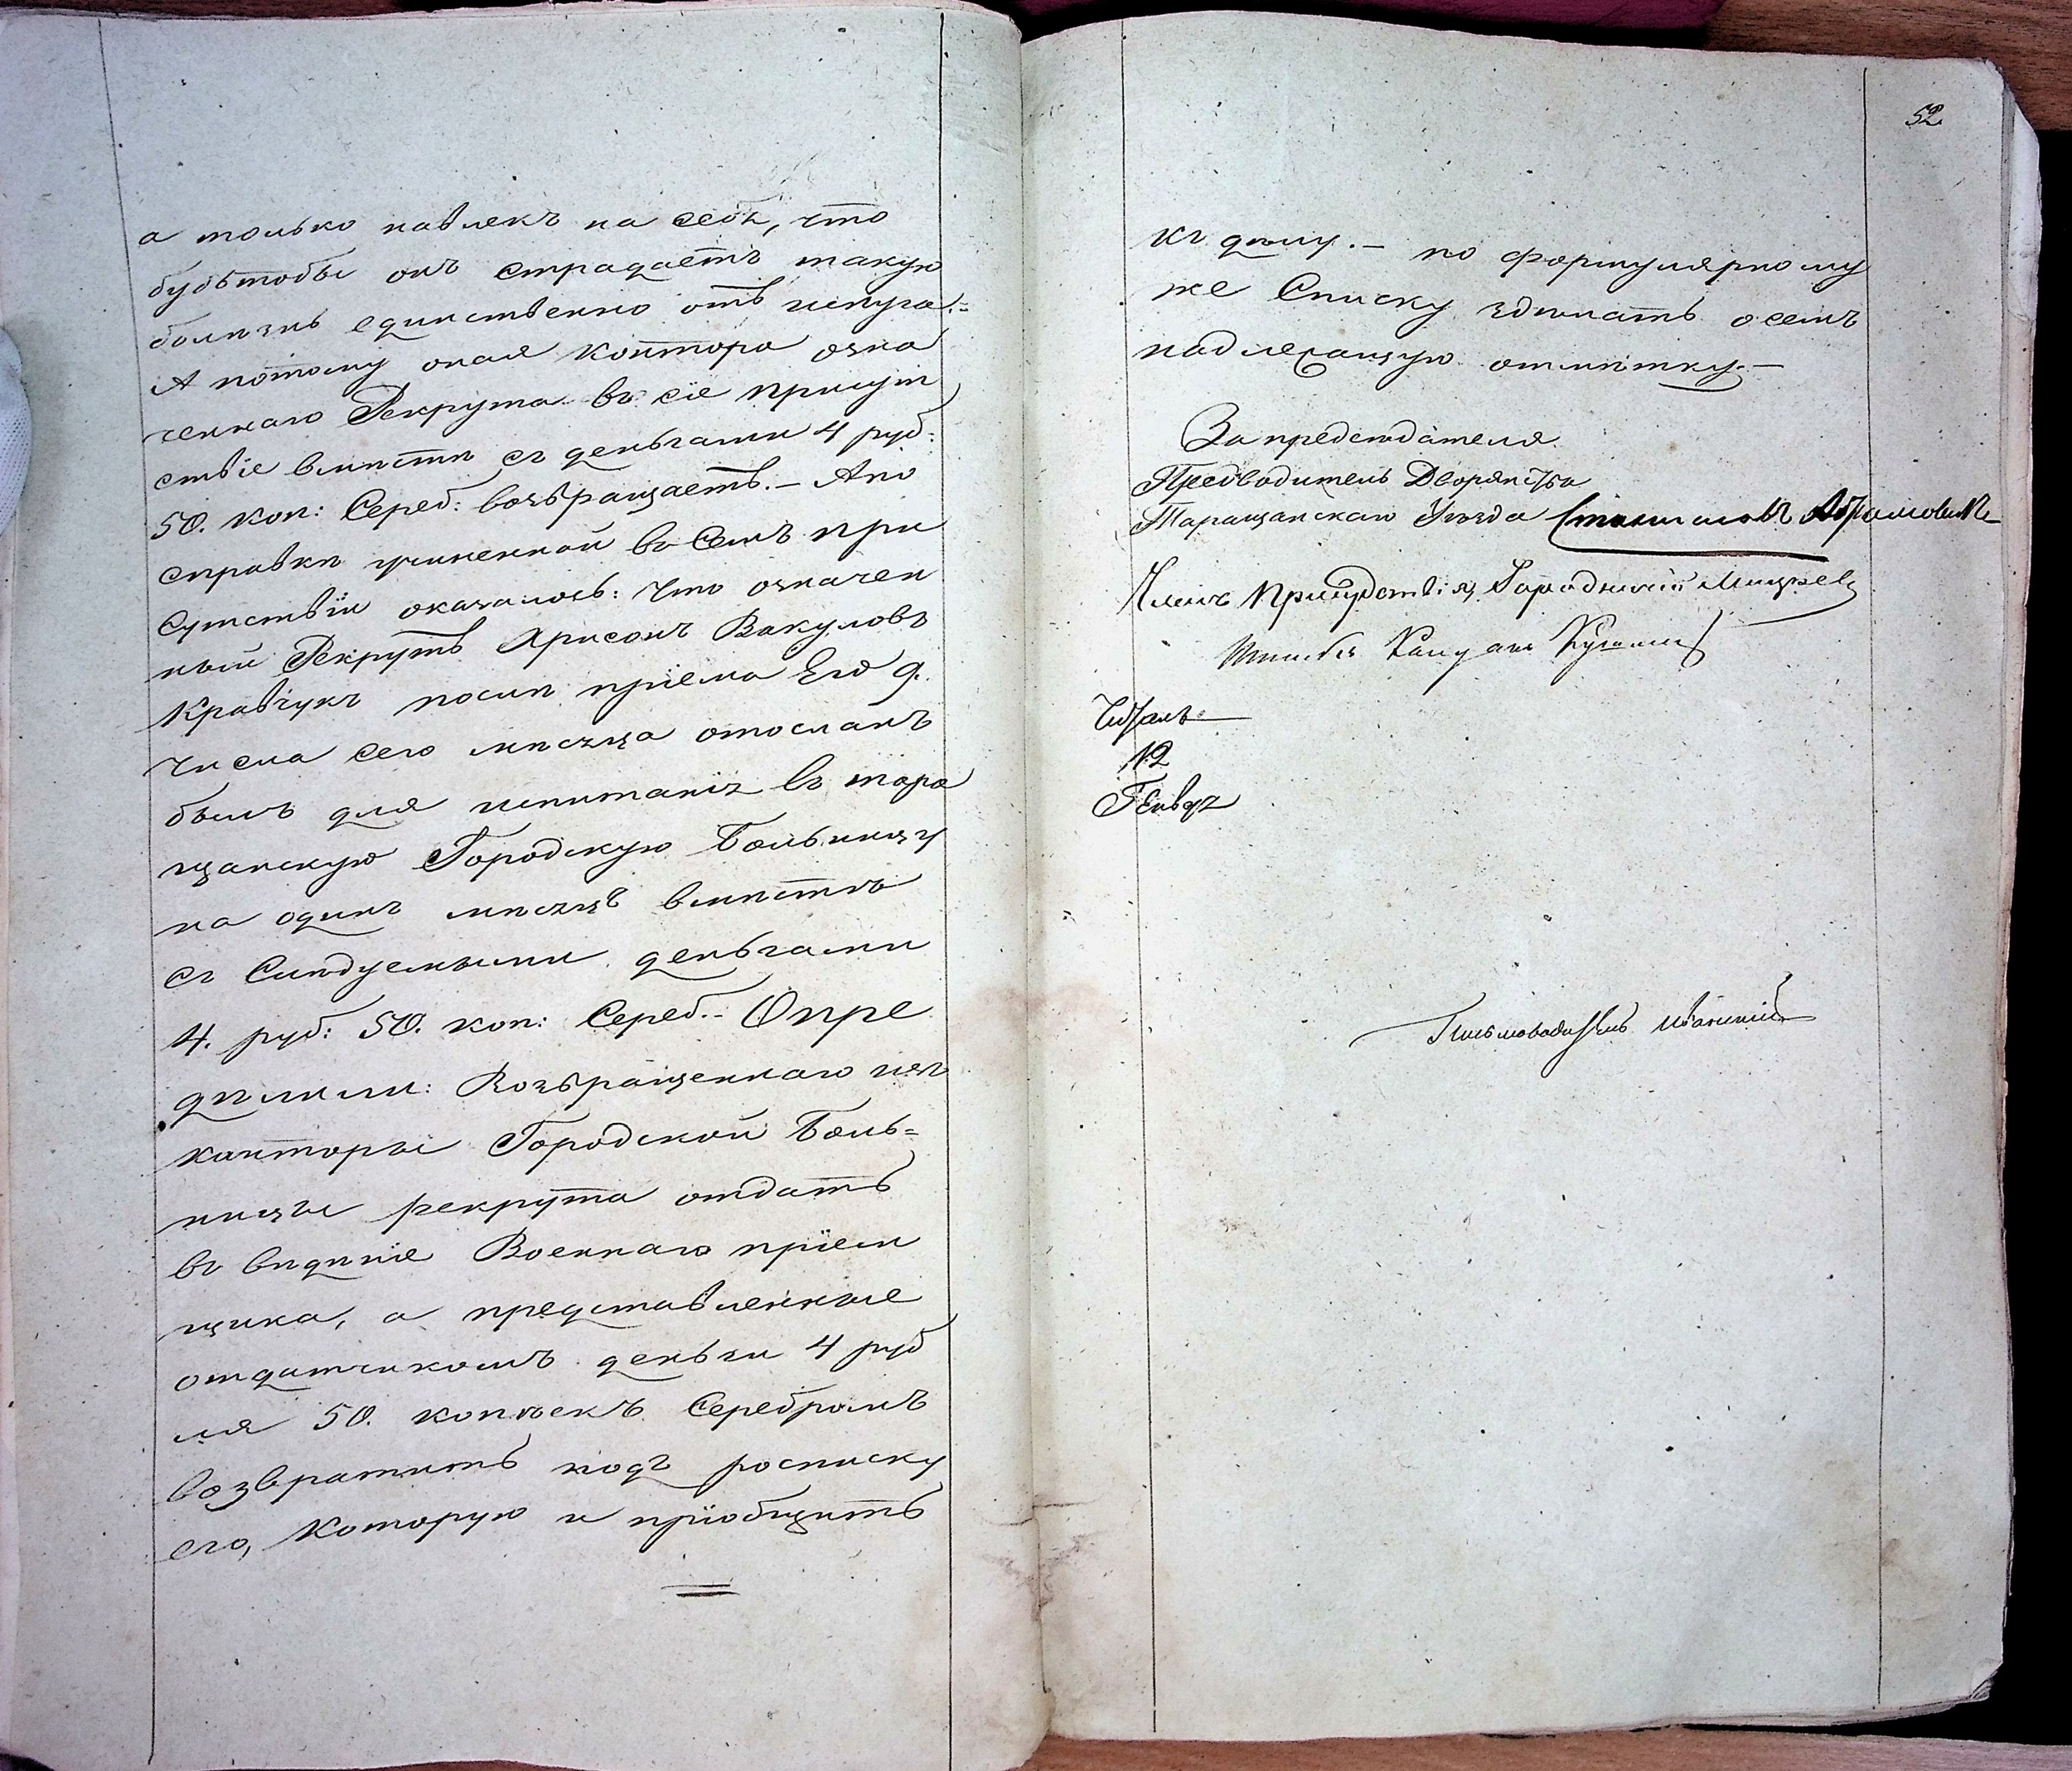 а только навлекъ на себя, что
будьтобы онъ страдаетъ такую
болѣзнь единственно отъ испуга.=
А потому оная Контора озна
ченнаго Рекрута въ сіе присут
ствіе вмѣстѣ съ деньгами 4 руб:
50. коп: Сереб: возвращаетъ. – А по
справкѣ учиненной въ Семъ при
Сутствіи оказалось: Что означен
ный Рекрутъ Хрисонъ Вакуловъ
Кравчукъ послѣ пріема Его 9.
числа сего мѣсяца отосланъ
былъ для испитанія въ тара
щанскую Городскую Больницу
на одинъ мѣсяцъ вмѣстѣ
съ Слѣдуемыми деньгами
4. руб: 50. коп: Сереб.- Опре
дѣлили: Возвращеннаго изъ
канторы Городской Боль=
ницы рекрута отдать
въ вѣдѣніе Военнаго пріем
щика, а представленные
отдатчикомъ деньги 4 руб
ля 50. копѣекъ Серебромъ
возвратить подъ росписку
его, Которую и пріобщить
52
къ дѣлу. – по формулярному
же Списку здѣлать о семъ
надлежащую отмѣтку. –
За предсѣдателя
Предводитель Дворянства
Таращанскаго Уѣзда
Членъ Присудствія, Городничій
Читалъ
12
Генваря
Письмоводитель